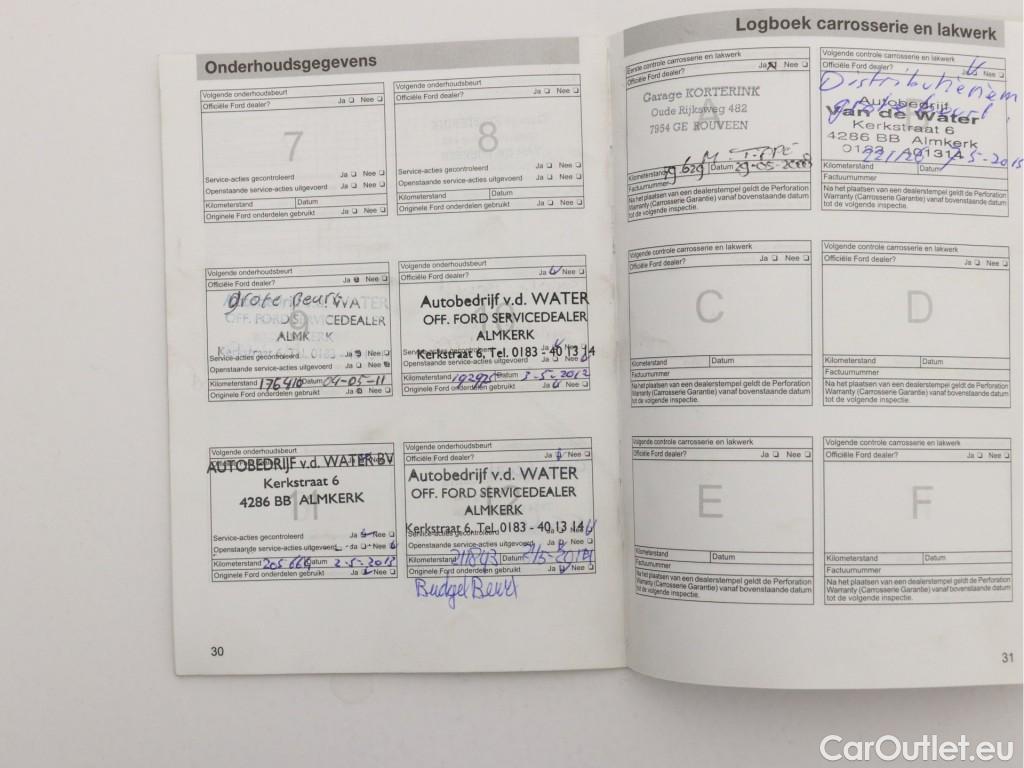 Onderhoudsgegevens
Volgende onderhoudsbeurt
Officiële Ford dealer? Ja Nee
7
Service-acties gecontroleerd Ja Nee
Openstaande service-acties uitgevoerd Ja Nee
Kilometerstand Datum
Originele Ford onderdelen gebruikt Ja Nee
Volgende onderhoudsbeurt
Officiële Ford dealer? Ja Nee
8
Service-acties gecontroleerd Ja Nee
Openstaande service-acties uitgevoerd Ja Nee
Kilometerstand Datum
Originele Ford onderdelen gebruikt Ja Nee
Volgende onderhoudsbeurt
Ja Nee
Grote Beurt
9
OFF. FORD SERVICEDEALER
Kerkstraat 6
Service-acties gecontroleerd Ja Nee
Openstaande service-acties uitgevoerd Ja Nee
Kilometerstand 176410 Datum 04-05-11
Originele Ford onderdelen gebruikt Ja Nee
Volgende onderhoudsbeurt
Ja Nee
10
Autobedrijf v.d. WATER
OFF. FORD SERVICEDEALER
ALMKERK
Kerkstraat 6, Tel. 0183 - 40 13 14
Openstaande service-acties uitgevoerd Ja Nee
Kilometerstand Datum 3-5-2012
Originele Ford onderdelen gebruikt Ja Nee
Volgende onderhoudsbeurt
AUTOBEDRIJF v.d. WATER BV
Kerkstraat 6
4286 BB ALMKERK
11
Service-acties gecontroleerd Ja Nee
Openstaande service-acties uitgevoerd Ja Nee
Kilometerstand 205664 Datum 2-5-2013
Originele Ford onderdelen gebruikt Ja Nee
Volgende onderhoudsbeurt
Officiële Ford dealer? Ja Nee
12
Autobedrijf v.d. WATER
OFF. FORD SERVICEDEALER
ALMKERK
Kerkstraat 6, Tel. 0183 - 40 13 14
Service-acties gecontroleerd Ja
Openstaande service-acties uitgevoerd Ja Nee
Kilometerstand 211893 Datum
Originele Ford onderdelen gebruikt Ja Nee
Budget Beurt
30
Logboek carrosserie en lakwerk
Eerste controle carrosserie en lakwerk
Officiële Ford dealer? Ja Nee
A
Garage KORTERINK
Oude Rijksweg 482
7954 GE ROUVEEN
Kilometerstand 79.629 Datum 29-05-2008
Factuurnummer
Na het plaatsen van een dealerstempel geldt de Perforation
Warranty (Carrosserie Garantie) vanaf bovenstaande datum
tot de volgende inspectie.
Volgende controle carrosserie en lakwerk
Officiële Ford dealer? Ja Nee
Distributieriem
grote beurt
Autobedrijf
Van de Water
Kerkstraat 6
4286 BB Almkerk
0183 401314
Kilometerstand Datum
Factuurnummer
Na het plaatsen van een dealerstempel geldt de Perforation
Warranty (Carrosserie Garantie) vanaf bovenstaande datum
tot de volgende inspectie.
Volgende controle carrosserie en lakwerk
Officiële Ford dealer? Ja Nee
C
Kilometerstand Datum
Factuurnummer
Na het plaatsen van een dealerstempel geldt de Perforation
Warranty (Carrosserie Garantie) vanaf bovenstaande datum
tot de volgende inspectie.
Volgende controle carrosserie en lakwerk
Officiële Ford dealer? Ja Nee
D
Kilometerstand Datum
Factuurnummer
Na het plaatsen van een dealerstempel geldt de Perforation
Warranty (Carrosserie Garantie) vanaf bovenstaande datum
tot de volgende inspectie.
Volgende controle carrosserie en lakwerk
Officiële Ford dealer? Ja Nee
E
Kilometerstand Datum
Factuurnummer
Na het plaatsen van een dealerstempel geldt de Perforation
Warranty (Carrosserie Garantie) vanaf bovenstaande datum
tot de volgende inspectie.
Volgende controle carrosserie en lakwerk
Officiële Ford dealer? Ja Nee
F
Kilometerstand Datum
Factuurnummer
Na het plaatsen van een dealerstempel geldt de Perforation
Warranty (Carrosserie Garantie) vanaf bovenstaande datum
tot de volgende inspectie.
31
CarOutlet.eu